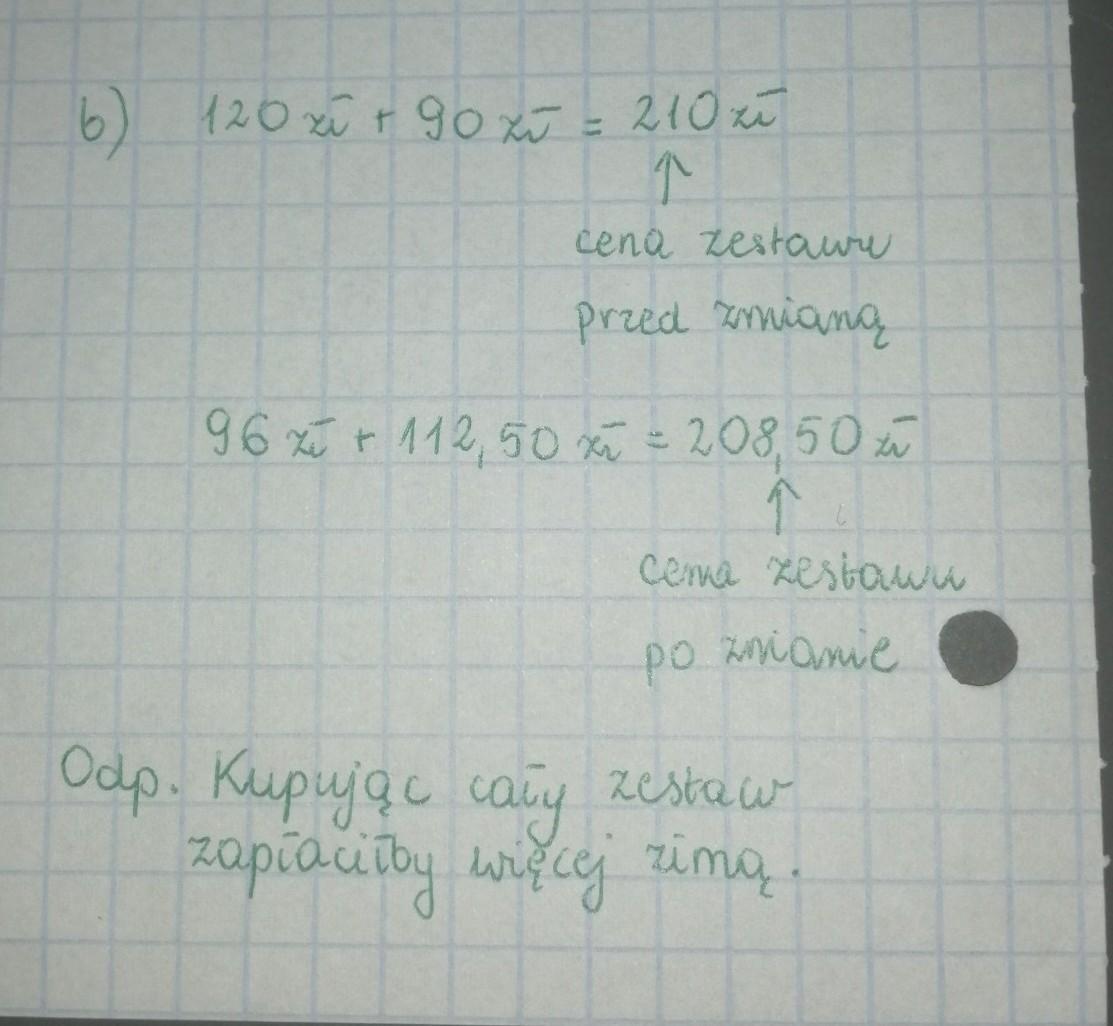 b) 120 zł + 90 zł = 210 zł
↑
cena zestawu
przed zmianą
96 zł + 112,50 zł = 208,50 zł
↑
cena zestawu
po zmianie
Odp. Kupując cały zestaw
zapłaciłby więcej zimą.